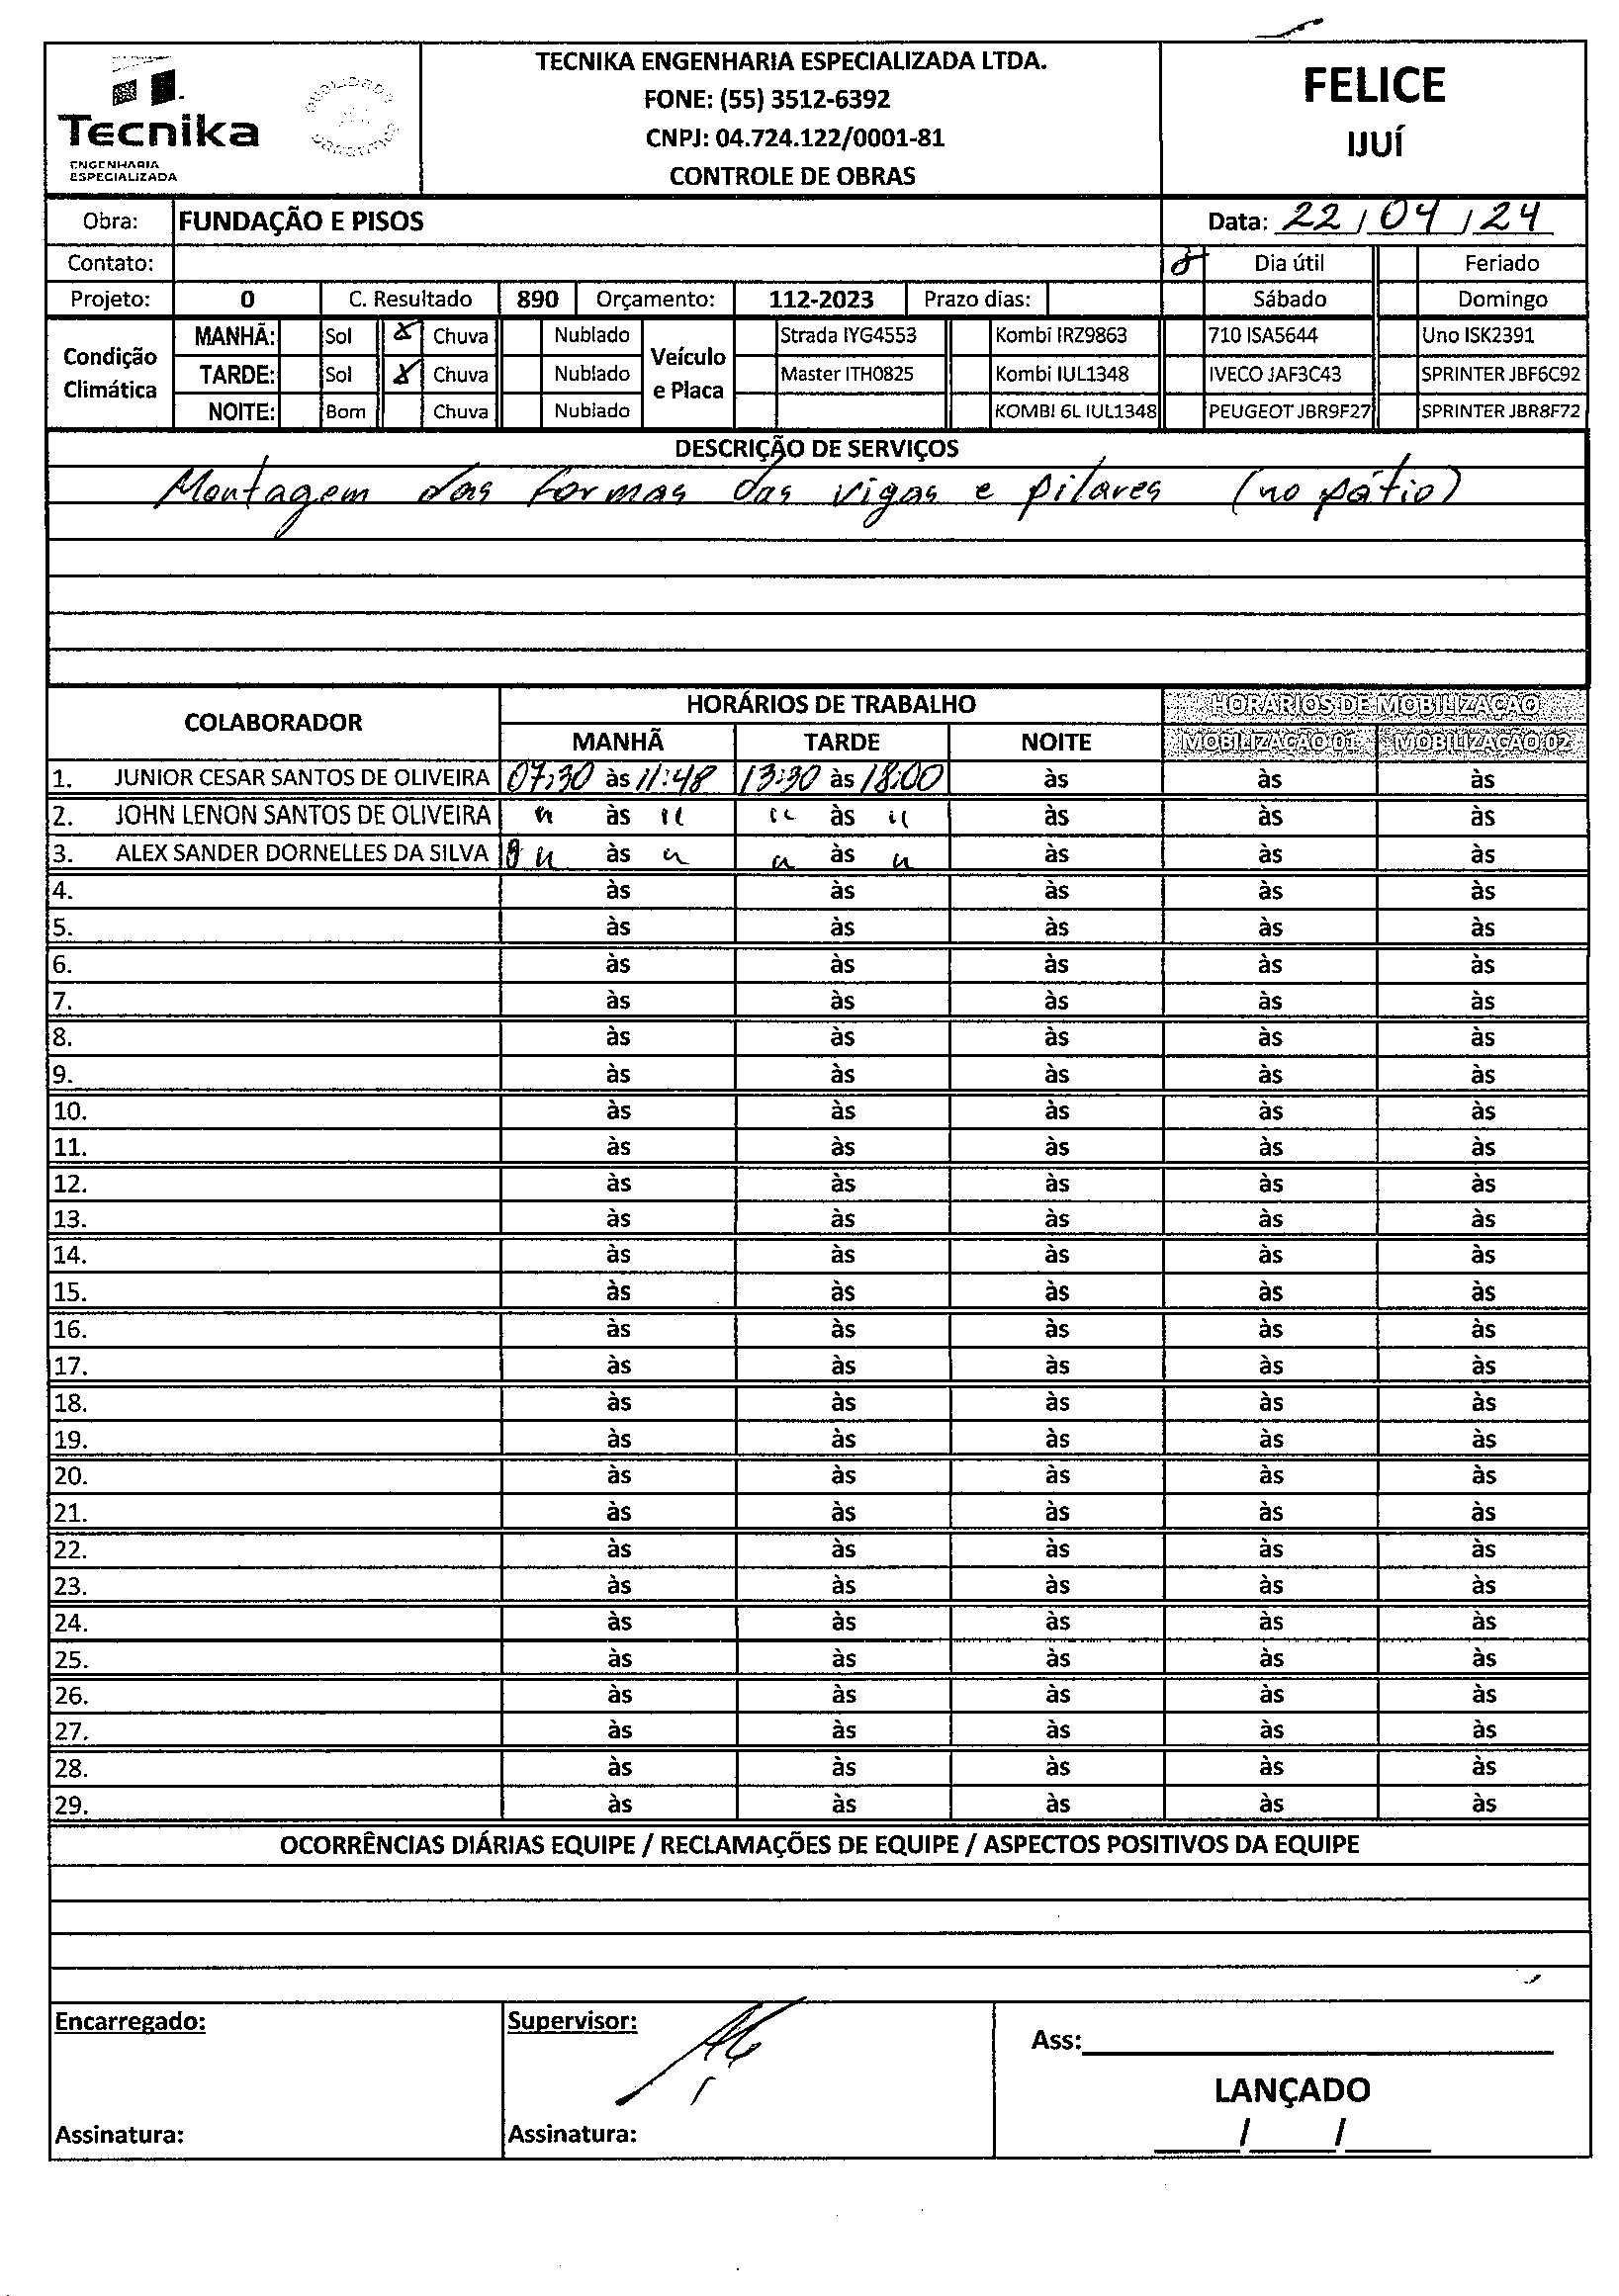 TECNIKA ENGENHARIA ESPECIALIZADA LTDA.
FONE: (55) 3512-6392
CNPJ: 04.724.122/0001-81
CONTROLE DE OBRAS
Tecnika
ENGENHARIA
ESPECIALIZADA
FELICE
IJUÍ
Obra: FUNDAÇÃO E PISOS Data: 22/04/24
Contato: Dia útil Feriado
Projeto: 0 C. Resultado 890 Orçamento: 112-2023 Prazo dias: Sábado Domingo
Condição Climática
MANHÃ: Sol X Chuva Nublado
TARDE: Sol X Chuva Nublado
NOITE: Bom Chuva Nublado
Veículo e Placa
Strada IYG4553 Kombi IRZ9863 710 ISA5644 Uno ISK2391
Master ITH0825 Kombi IUL1348 IVECO JAF3C43 SPRINTER JBF6C92
KOMBI 6L IUL1348 PEUGEOT JBR9F27 SPRINTER JBR8F72
DESCRIÇÃO DE SERVIÇOS
Montagem das formas das vigas e pilares (no pátio)
COLABORADOR HORÁRIOS DE TRABALHO HORÁRIOS DE MOBILIZAÇÃO
MANHÃ TARDE NOITE MOBILIZAÇÃO 01 MOBILIZAÇÃO 02
1. JUNIOR CESAR SANTOS DE OLIVEIRA 07:30 às 11:48 13:30 às 18:00 às às às
2. JOHN LENON SANTOS DE OLIVEIRA " às " " às " às às às
3. ALEX SANDER DORNELLES DA SILVA " às " " às " às às às
4. às às às às às
5. às às às às às
6. às às às às às
7. às às às às às
8. às às às às às
9. às às às às às
10. às às às às às
11. às às às às às
12. às às às às às
13. às às às às às
14. às às às às às
15. às às às às às
16. às às às às às
17. às às às às às
18. às às às às às
19. às às às às às
20. às às às às às
21. às às às às às
22. às às às às às
23. às às às às às
24. às às às às às
25. às às às às às
26. às às às às às
27. às às às às às
28. às às às às às
29. às às às às às
OCORRÊNCIAS DIÁRIAS EQUIPE / RECLAMAÇÕES DE EQUIPE / ASPECTOS POSITIVOS DA EQUIPE
Encarregado: Supervisor: Ass:
LANÇADO
Assinatura: Assinatura: / /